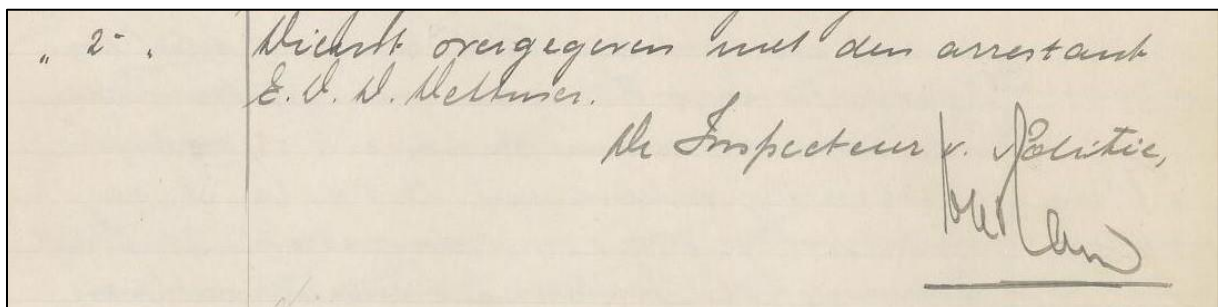 „ 2- „ Dienst overgegeven met den arrestant
E. D. D. Dettmer.
De Inspecteur v. Politie,